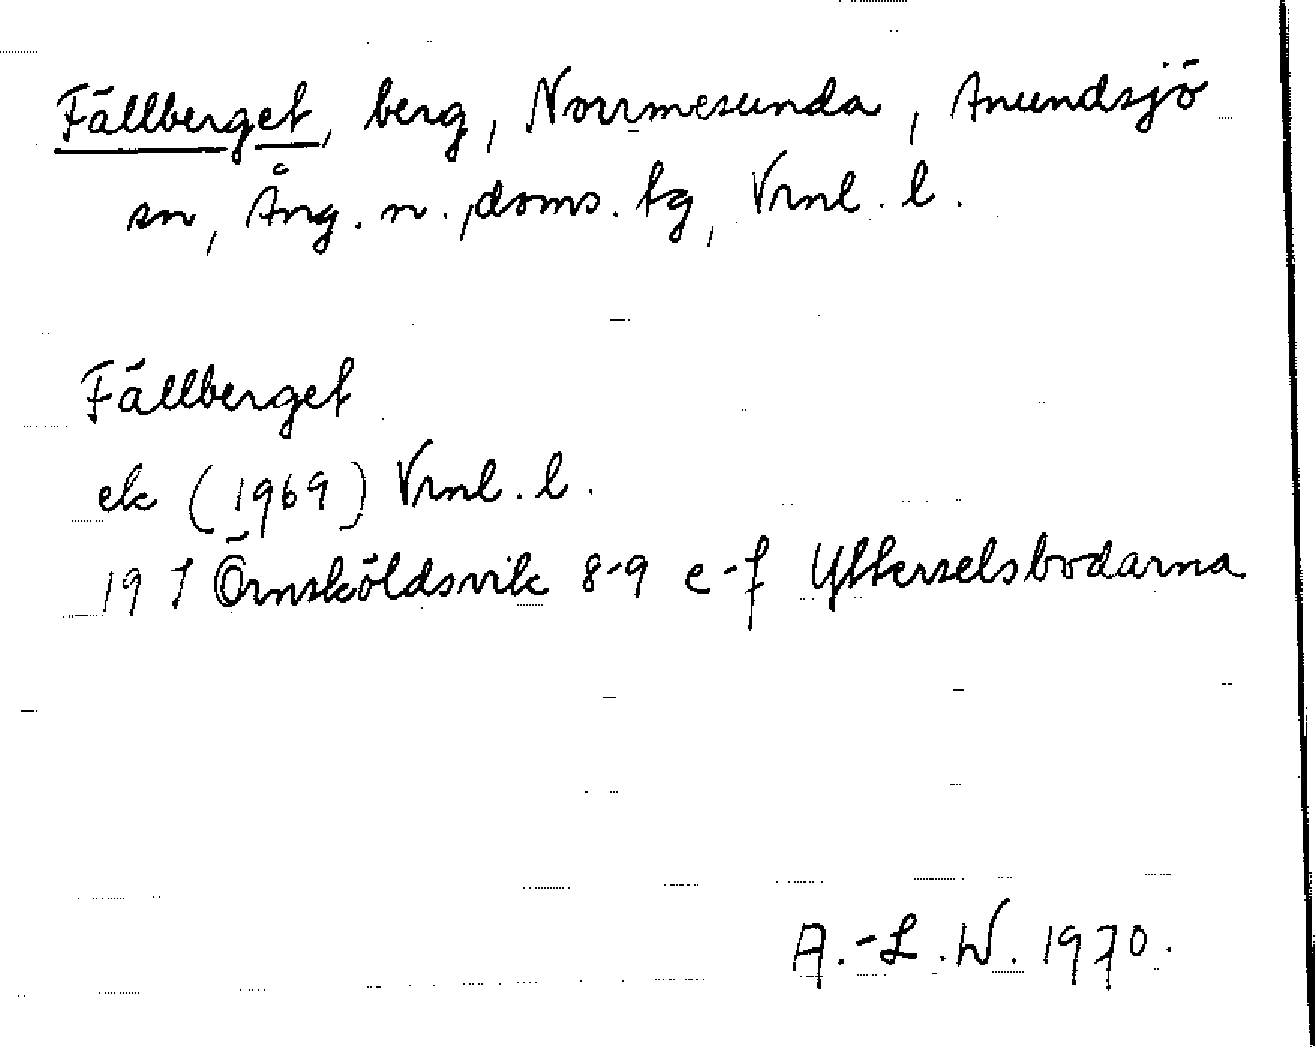 Fällberget, berg, Norrmesunda, Anundsjö
sn, Ång. n. doms. tg, Vrnl. l.
Fällberget
ek (1969) Vrnl. l.
19 J Örnsköldsvik 8-9 e-f Ytterselsbodarna
A.-L. W. 1970.